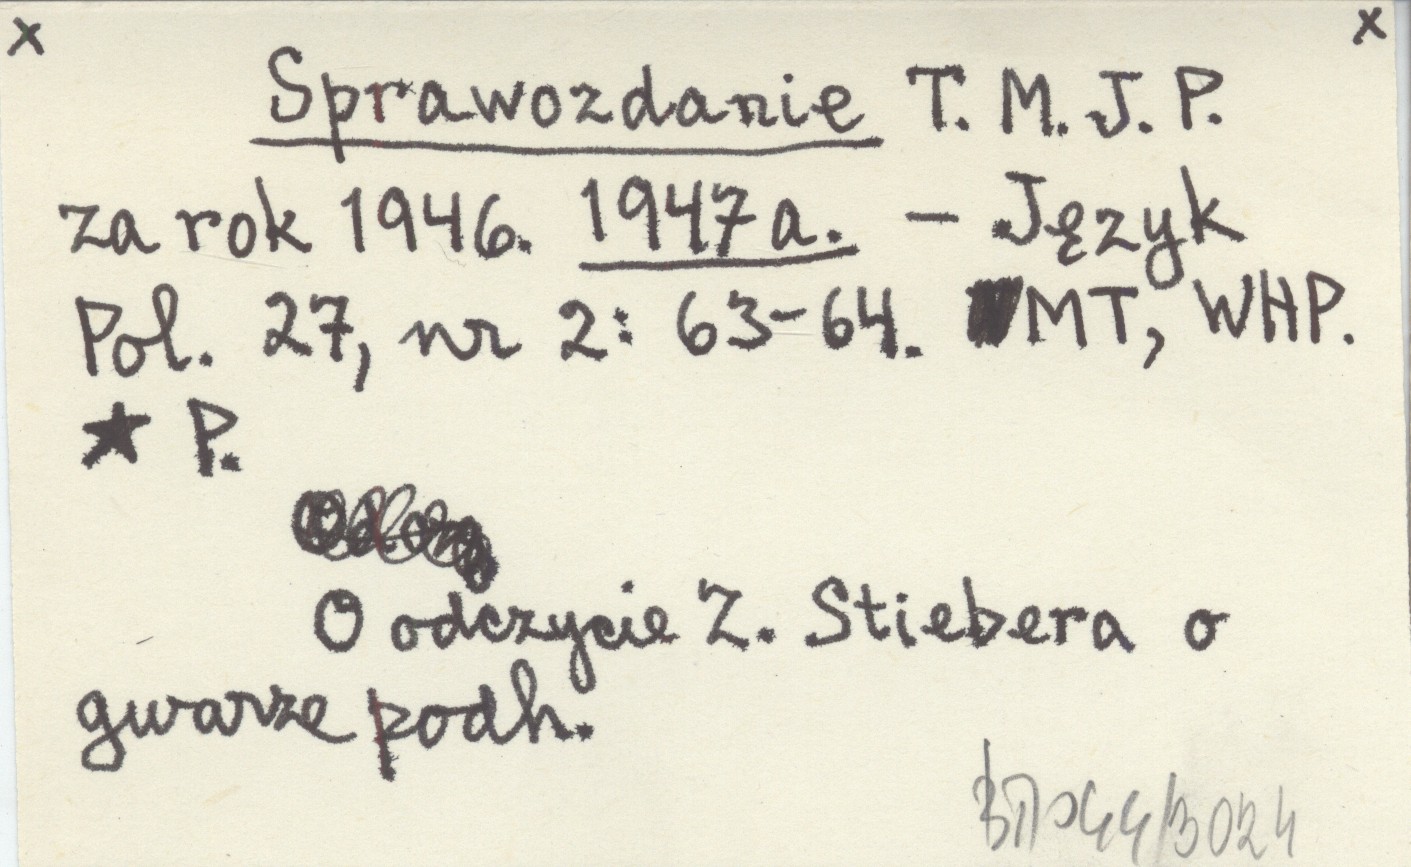 x x
Sprawozdanie T. M. J. P.
za rok 1946. 1947a. – Język
Pol. 27, nr 2: 63-64. MT, WHP.
★ P.
O odczycie Z. Stiebera o
gwarze podh.